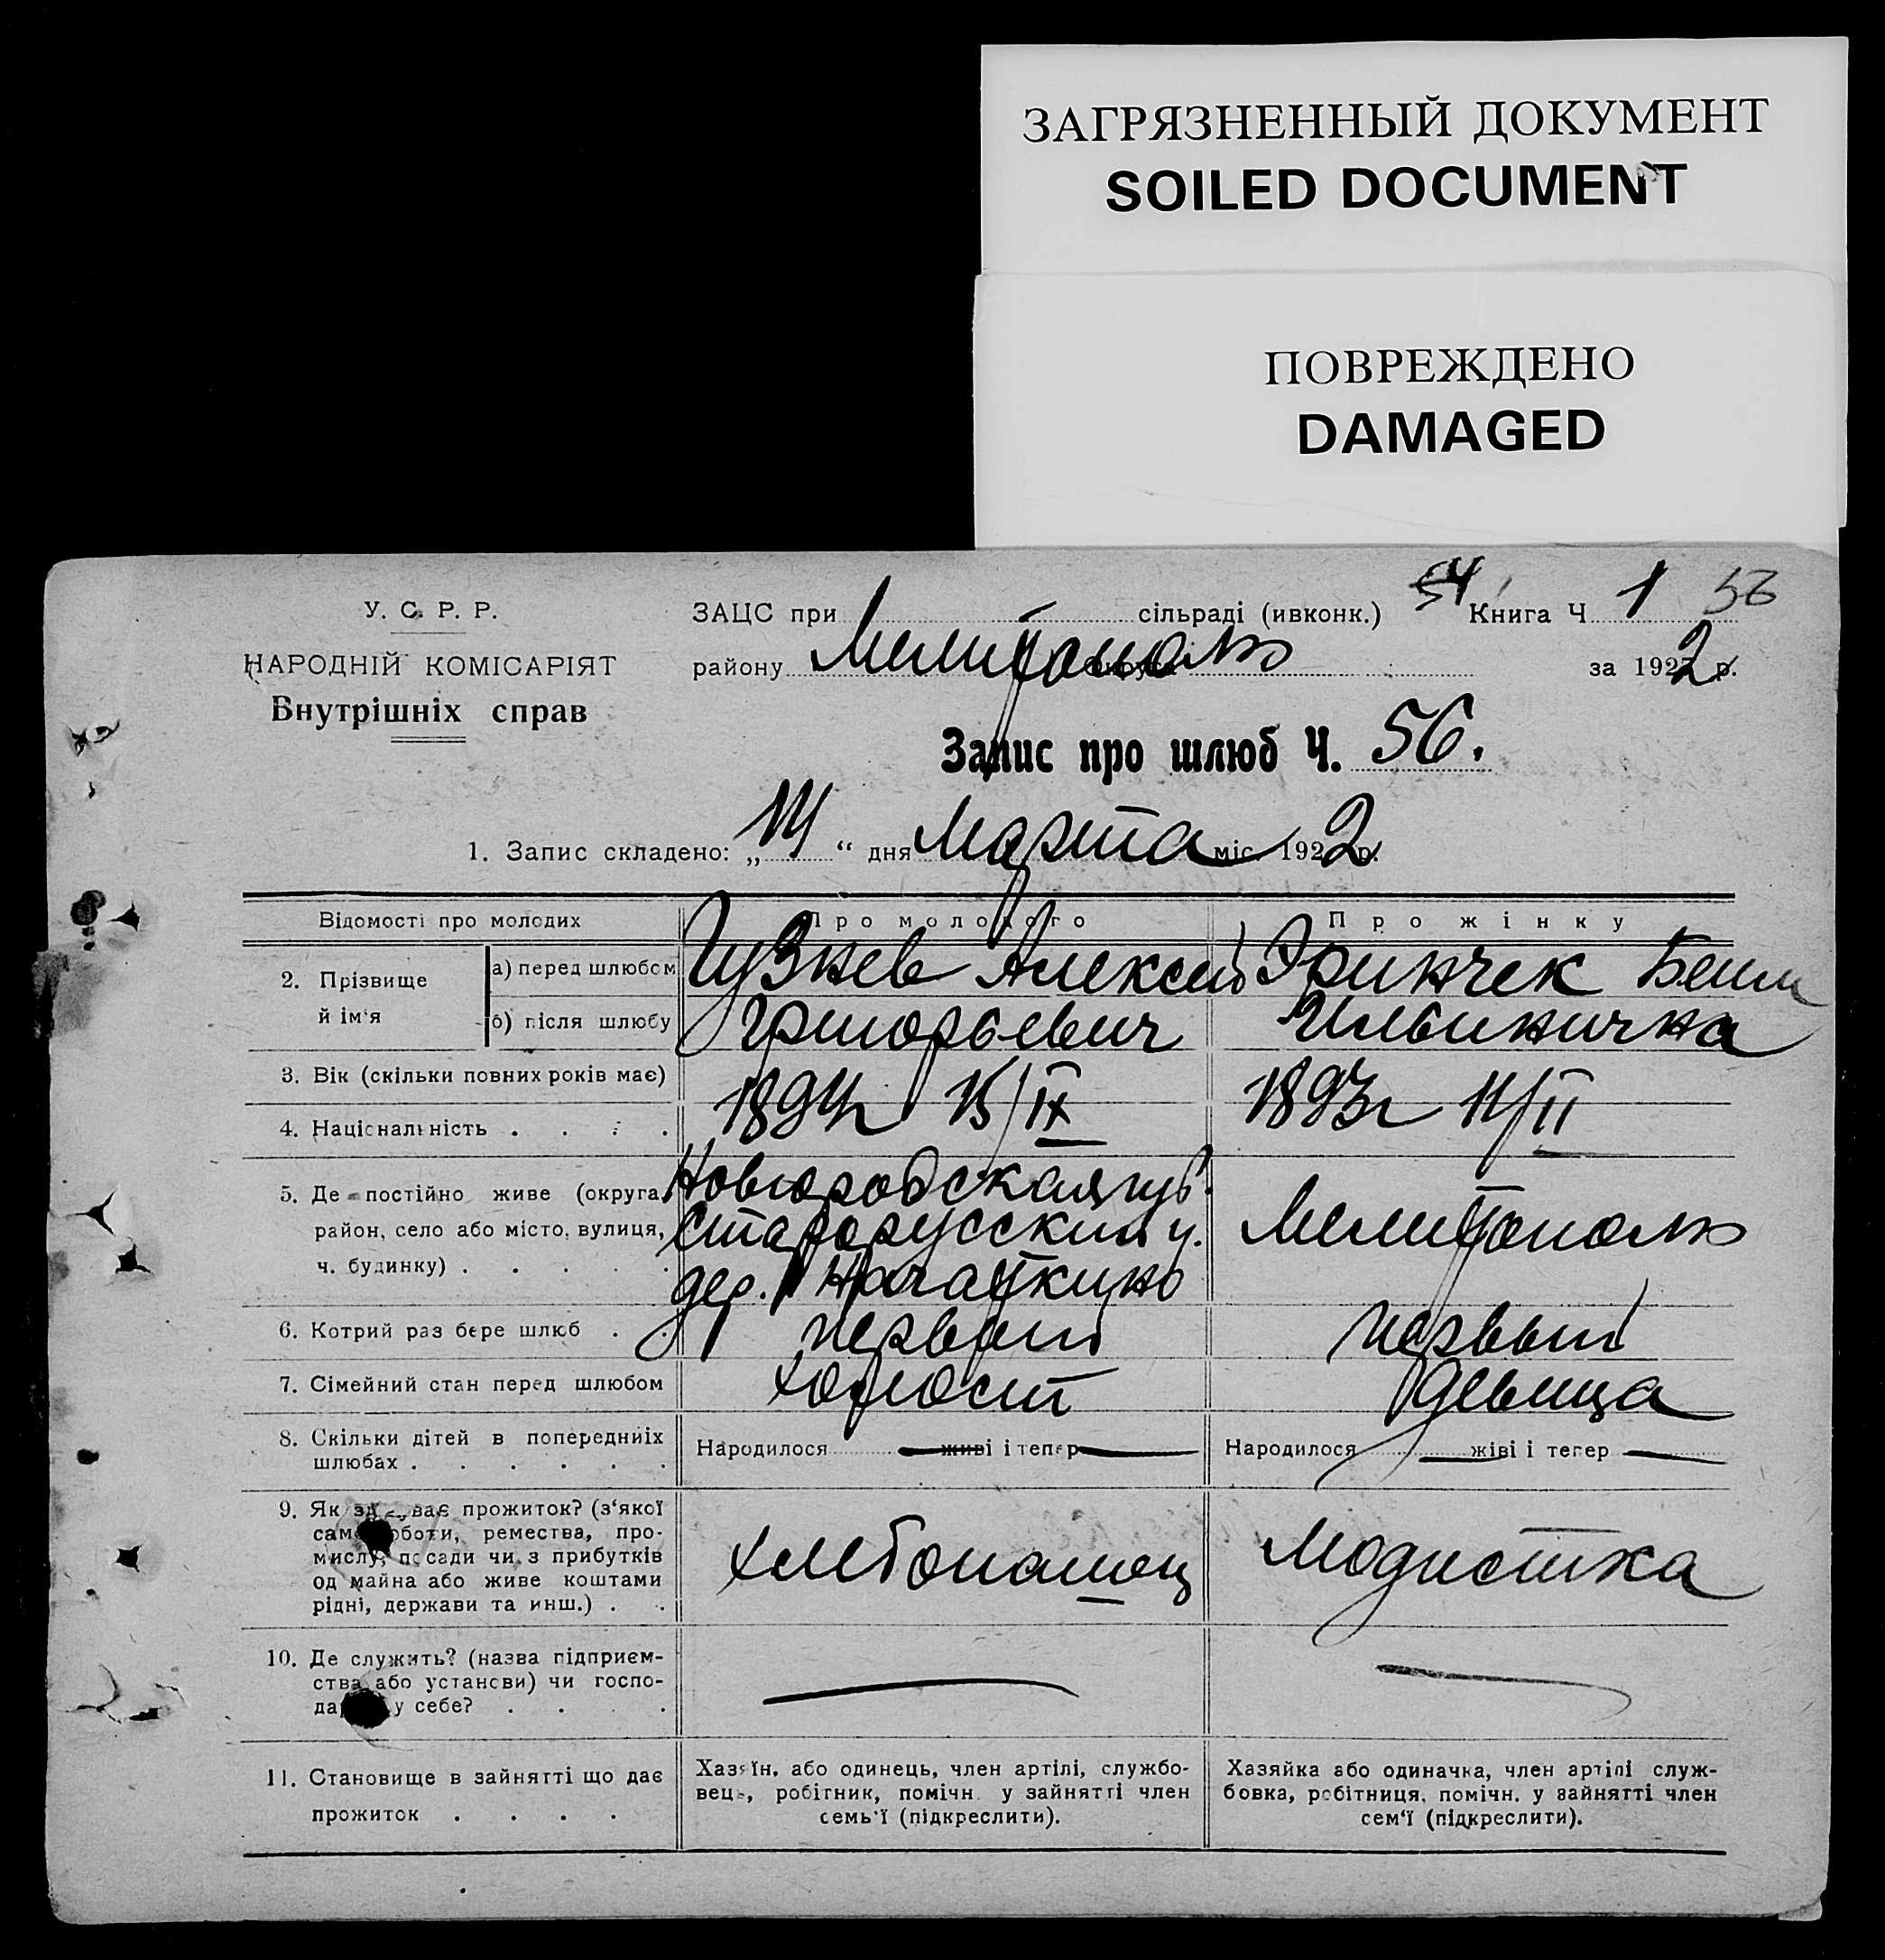 ЗАГРЯЗНЕННЫЙ ДОКУМЕНТ
SOILED DOCUMENT
ПОВРЕЖДЕНО
DAMAGED
У. С. Р. Р.
НАРОДНІЙ КОМІСАРІЯТ
Внутрішніх справ
ЗАЦС при сільраді (ивконк.) 54 Книга Ч 1 56
району Мелитополь за 1922 р.
Запис про шлюб Ч. 56.
1. Запис складено: „14“ дня Марта міс. 1922 р.
Відомості про молодих Про молодого Про жінку
2. Прізвище й ім'я а) перед шлюбом Гузнев Алексей Гринчек
б) після шлюбу Григорьевич Ильинична
3. Вік (скільки повних років має)
4. Національність 1894г 15/IX 1893г 11/II
5. Де постійно живе (округа, Новгородская губ.
район, село або місто, вулиця, Старорусский у. Мелитополь
ч. будинку) дер.
6. Котрий раз бере шлюб первый первый
7. Сімейний стан перед шлюбом холост девица
8. Скільки дітей в попередниіх Народилося живі і тепер Народилося жіві і тепер
шлюбах
9. Як здобуває прожиток? (з'якої
саме роботи, ремества, про-
мислу, посади чи з прибутків хлебопашец Модистка
од майна або живе коштами
рідні, держави та инш.)
10. Де служить? (назва підприєм-
ства або установи) чи госпо-
дарює у себе?
11. Становище в зайнятті що дає прожиток
Хазяїн, або одинець, член артілі, службо-
вець, робітник, помічн. у зайнятті член
семь'ї (підкреслити).
Хазяйка або одиначка, член артілі служ-
бовка, робітниця, помічн. у зайнятті член
сем'ї (підкреслити).